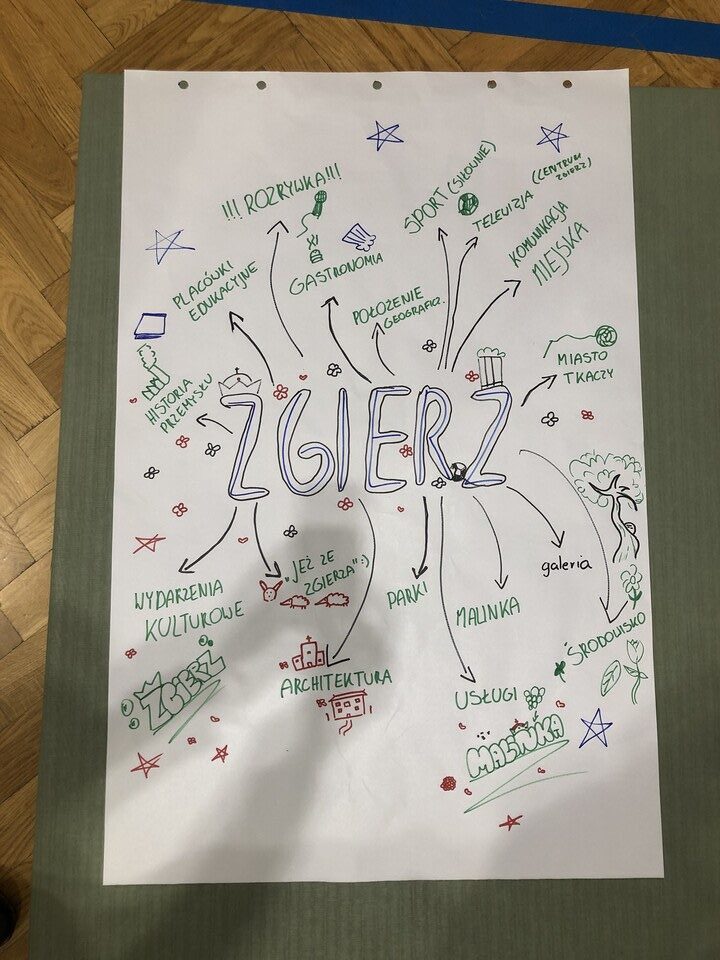 !!! ROZRYWKA!!!
SPORT (SIŁOWNIE)
TELEWIZJA (CENTRUM
ZGIERZ)
KOMUNIKACJA
MIEJSKA
PLACÓWKI
EDUKACYJNE
GASTRONOMIA
POŁOŻENIE
GEOGRAFICZ.
HISTORIA
PRZEMYSŁU
MIASTO
TKACZY
ZGIERZ
galeria
„JEŻ ZE
ZGIERZA" :)
WYDARZENIA
KULTUROWE
PARKI
MALINKA
ŚRODOWISKO
ZGIERZ
ARCHITEKTURA
USŁUGI
MALINKA